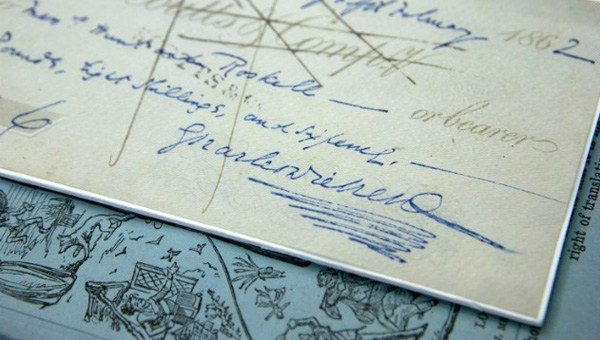 February 1862
outts & Comp
Hunt and Roskell — or bearer
Pounds, Eight Shillings, and Sixpence. —
Charles Dickens
6
right of translation